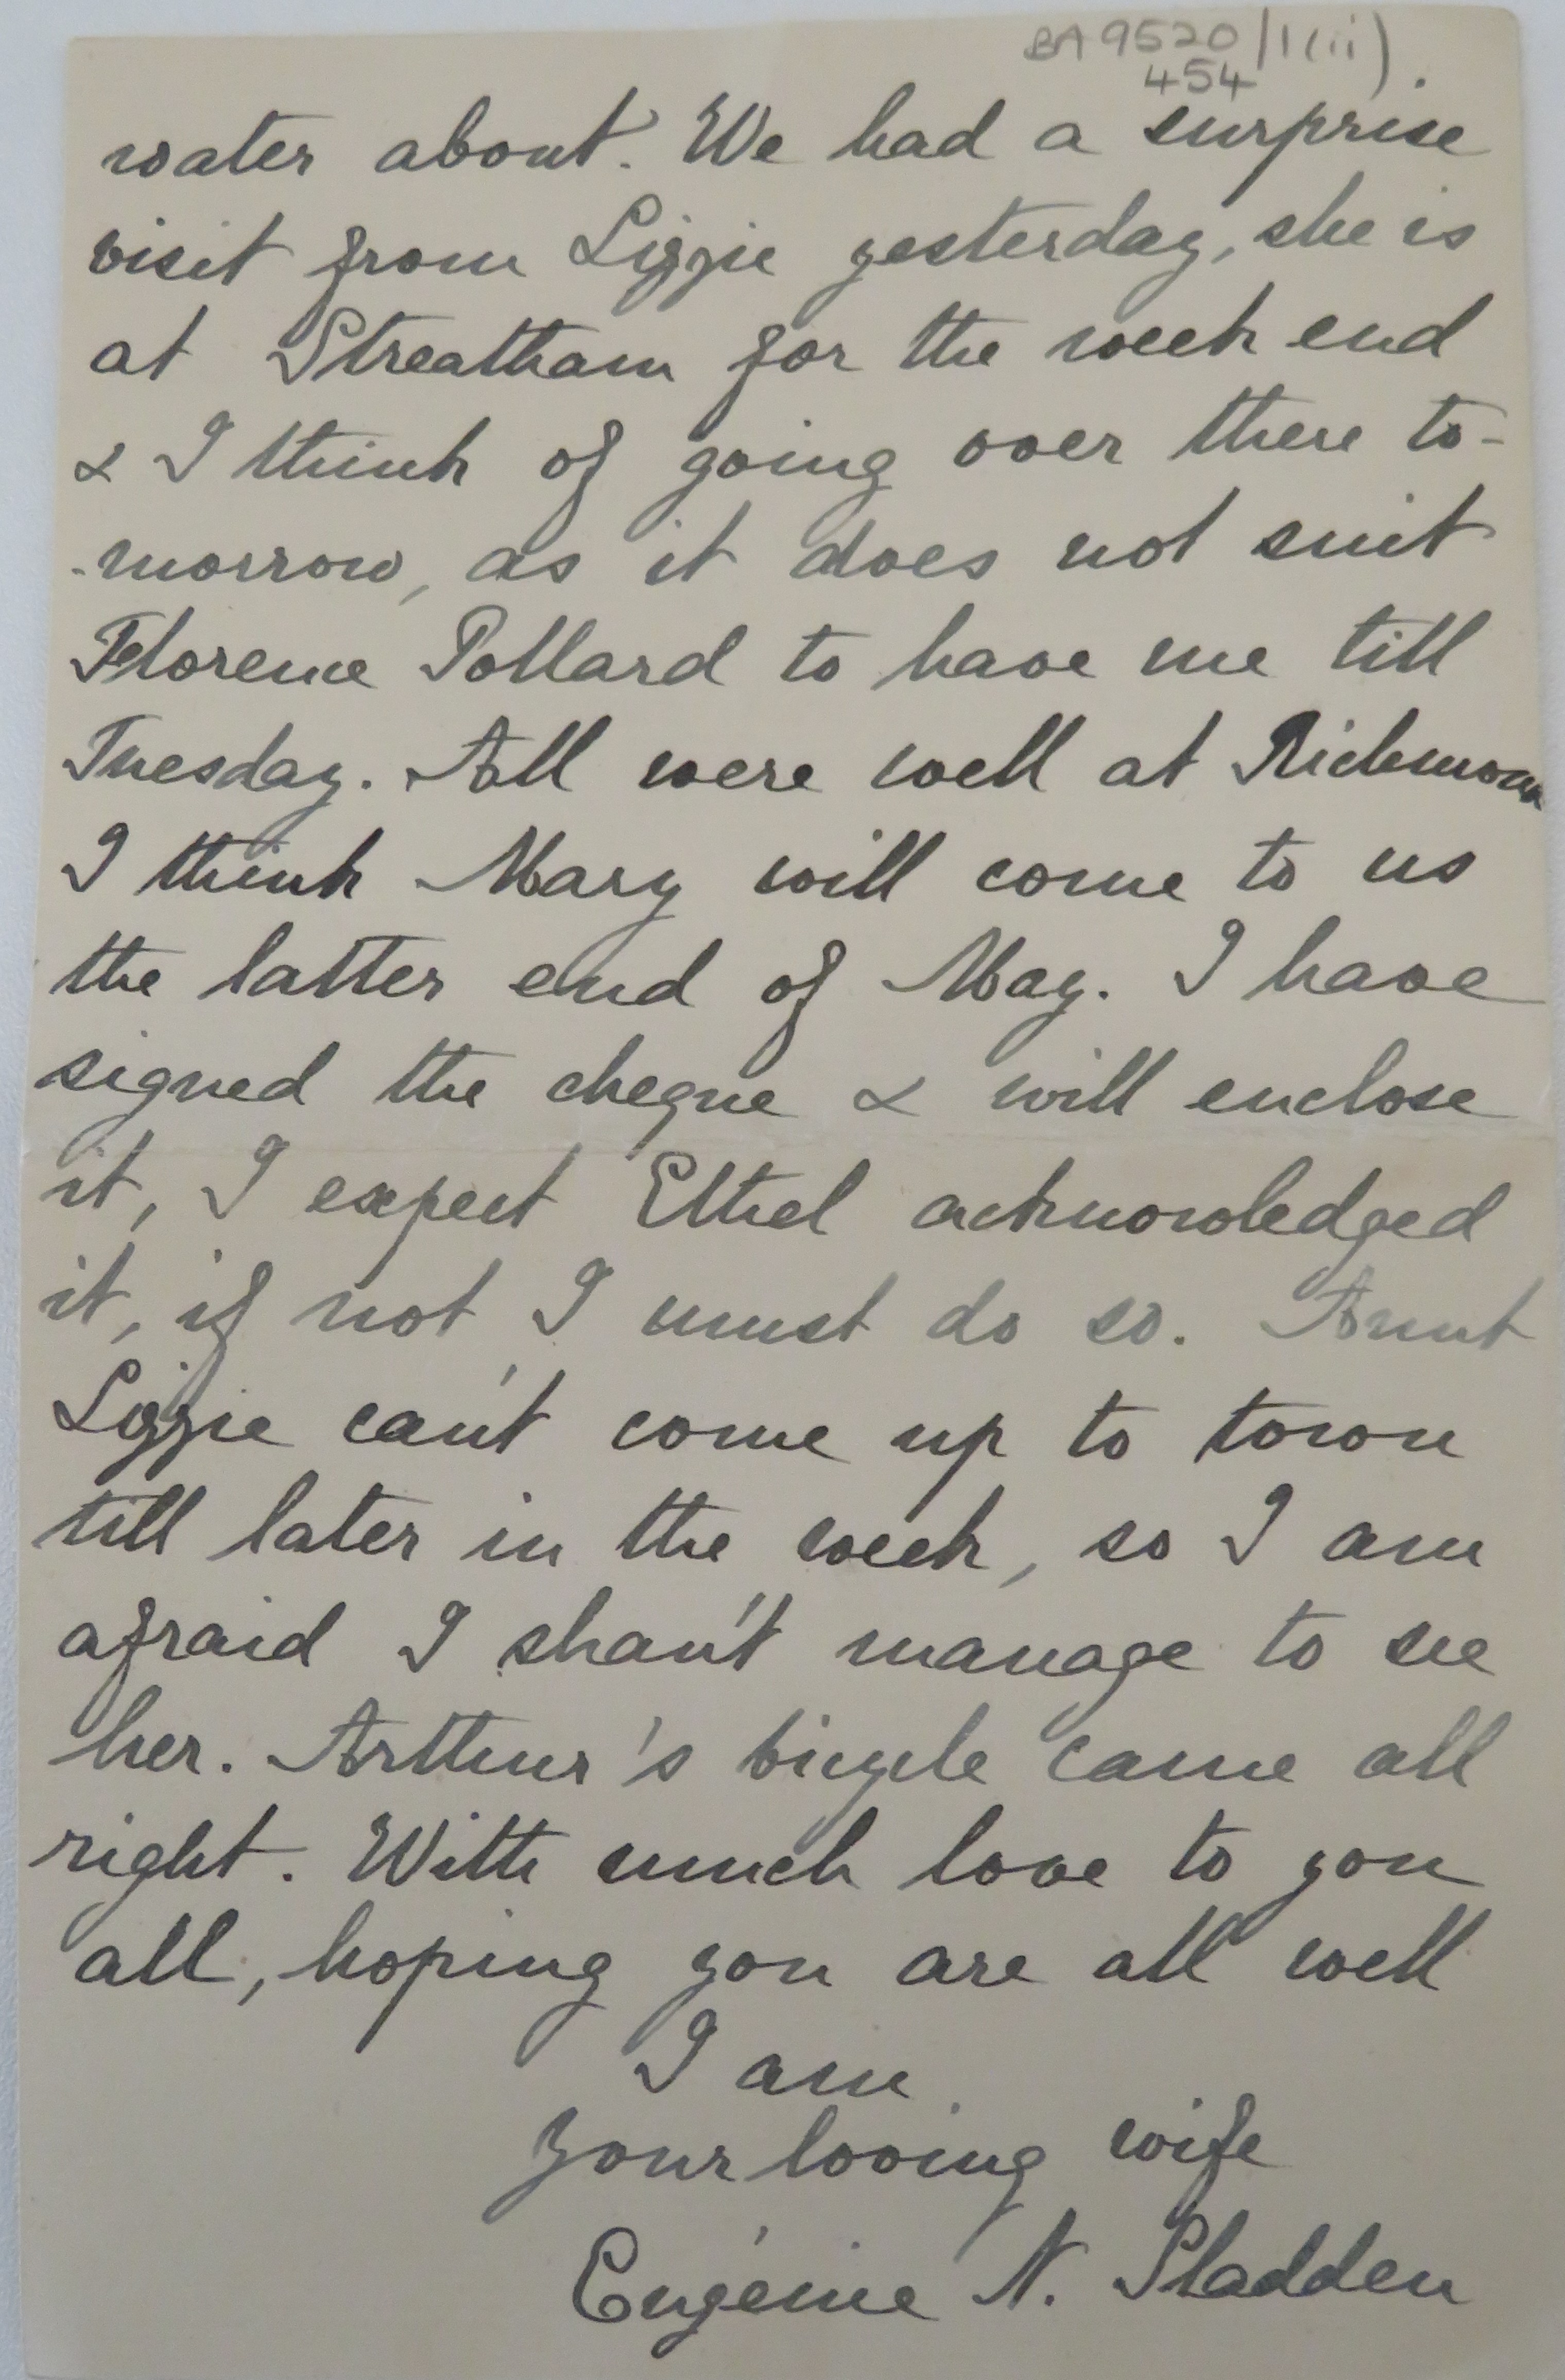 BA 9520/1(ii).
454
water about. We had a surprise
visit from Lizzie yesterday, she is
at Streatham for the week end
& I think of going over there to-
-morrow, as it does not suit
Florence Pollard to have me till
Tuesday. All were well at Richmond
I think Mary will come to us
the latter end of May. I have
signed the cheque & will enclose
it, I expect Ethel acknowledged
it, if not I must do so. Aunt
Lizzie can't come up to town
till later in the week, so I am
afraid I shan't manage to see
her. Arthur's bicycle came all
right. With much love to you
all, hoping you are all well
I am
your loving wife
Eugénie N. Sladden